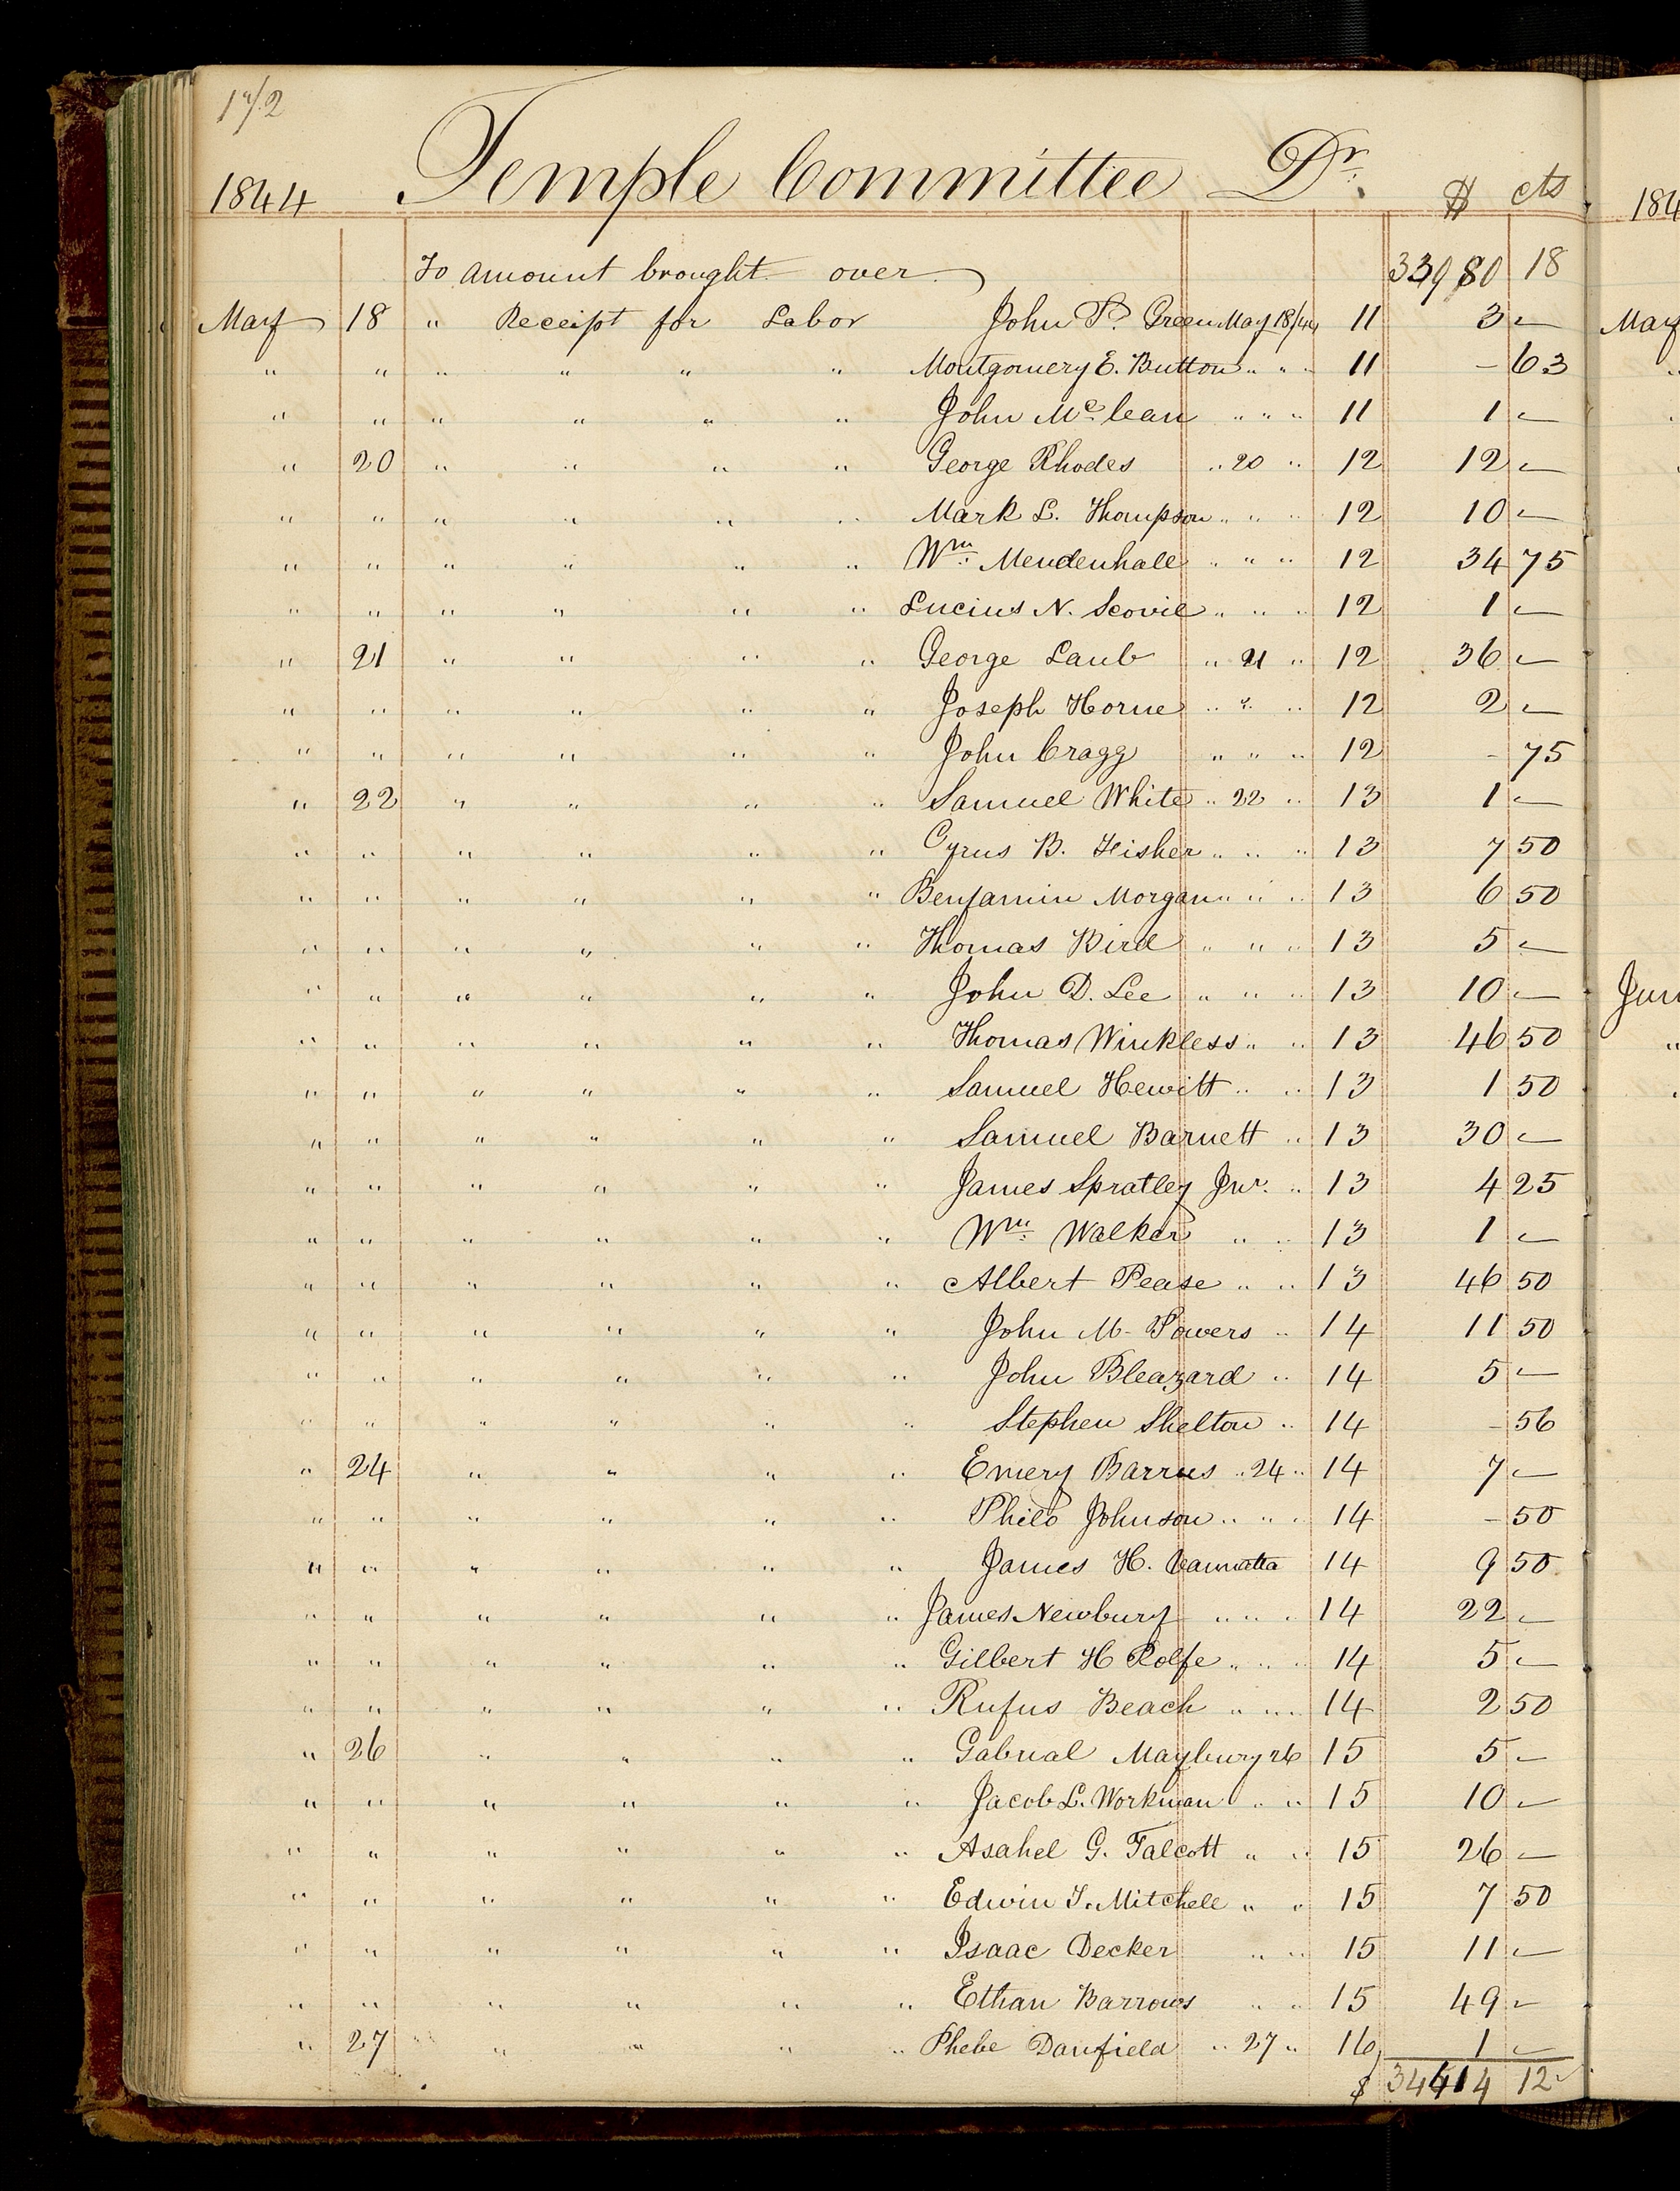 1842
1844 Temple Committee Dr. $ cts
To amount brought over 33980 18
May 18 " Receipt for Labor John P. Green May 18/44 11 3 —
" " " " " " Montgomery E. Button " " " 11 - 63
" " " " " " John Mc.lean " " " 11 1 —
" 20 " " " " George Rhodes " 20 " 12 12 —
" " " " " " Mark L. Thompson " " " 12 10 —
" " " " " " Wm. Mendenhall " " " 12 34 75
" " " " " " Lucius N. Scovil " " " 12 1 —
" 21 " " " " George Laub " 21 " 12 36 —
" " " " " " Joseph Horne " " " 12 2 —
" " " " " " John Cragg " " " 12 - 75
" 22 " " " " Samuel White " 22 " 13 1 —
" " " " " " Cyrus B. Fisher " " " 13 7 50
" " " " " " Benjamin Morgan " " " 13 6 50
" " " " " " Thomas Bird " " " 13 5 —
" " " " " " John D. Lee " " " 13 10 —
" " " " " " Thomas Winkless " " 13 46 50
" " " " " " Samuel Hewitt " " 13 1 50
" " " " " " Samuel Barnett " 13 30 —
" " " " " " James Spratley Jnr. " 13 4 25
" " " " " " Wm. Walker " " 13 1 —
" " " " " " Albert Pease " " 13 46 50
" " " " " " John M. Powers " 14 11 50
" " " " " " John Bleazard " 14 5 —
" " " " " " Stephen Shelton " 14 - 56
" 24 " " " " Emery Barrus " 24 " 14 7 —
" " " " " " Philo Johnson " " " 14 - 50
" " " " " " James H. 14 9 50
" " " " " " James Newbury " " " 14 22 —
" " " " " " Gilbert H Rolfe " " " 14 5 —
" " " " " " Rufus Beach " " " 14 2 50
" 26 " " " " Gabrial Maybury 26 15 5 —
" " " " " " Jacob L. Workman " " 15 10 —
" " " " " " Asahel G. Falcott " " 15 26 —
" " " " " " Edwin T. Mitchell " " 15 7 50
" " " " " " Isaac Decker " " 15 11 —
" " " " " " Ethan Barrows " " 15 49 —
" 27 " " " " Phebe Danfield " 27 " 16 1 —
$ 34414 12
184
May
Jun